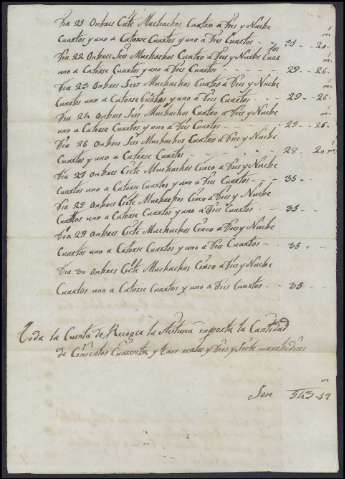 Dia 21 onbres Ciete Muchachos Cuatro a Tres y Nuebe
Cuartos y uno a Catorse Cuartos y uno a Tres Cuartos - 31 - 20
Dia 22 onbres Seis Muchachos Cuatro a Tres y Nuebe
uno a Catorse y uno a Tres Cuartos - 29 - 26
Dia 23 onbres Seis Muchachos Cuatro a Tres y Nuebe
Cuartos uno a Catorse Cuartos y uno a Tres Cuartos - 29 - 26
Dia 24 onbres Seis Muchachos Cuatro a Tres y Nuebe
uno a Catorse Cuartos y uno a Tres Cuartos - 29 - 26
Dia 26 onbres Ciete Muchachos Cuatro a Tres y Nuebe
Cuartos y uno a Catorse Cuartos - 28 - 20
Dia onbres Ciete Muchachos Cinco a Tres y Nuebe
Cuartos uno a Catorse Cuartos y uno a Tres Cuartos - 35
Dia onbres Ciete Muchachos Cinco a Tres y Nuebe
Cuartos uno a Catorse Cuartos y uno a Tres Cuartos - 35
Dia 29 onbres Ciete Muchachos Cinco a Tres y Nuebe
Cuartos uno a Catorse Cuartos y uno a Tres Cuartos - 35
Dia 30 onbres Ciete Muchachos Cinco a Tres y Nuebe
Cuartos uno a Catorse Cuartos y uno a Tres Cuartos - 35
Toda la Cuenta de Recoger la Aseituna inporta la Cantidad
de Cinientos Cuarenta y reales y Tres y Siete maravedises
Son 543 - 17